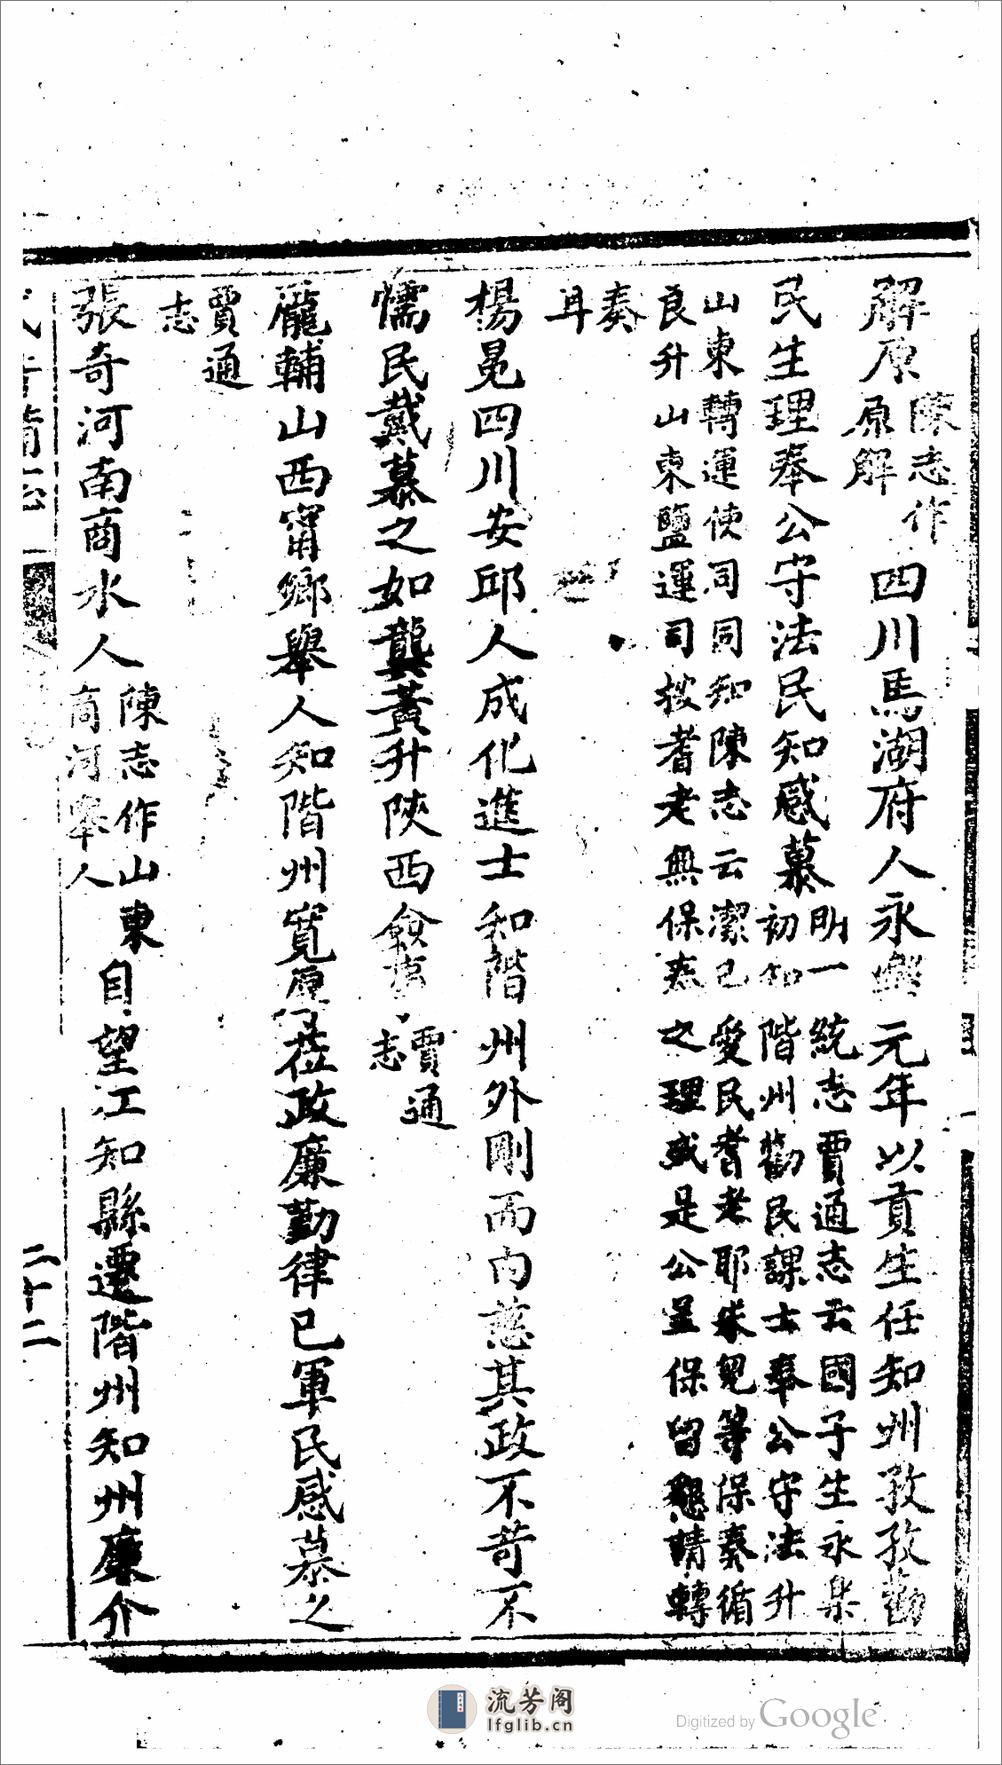 解原陳志作原解四川馬湖府人永樂元年以貢生任知州孜孜勸
民生理奉公守法民知感慕明一統志賈通志云國子生永樂
初知階州勸民課士奉公守法升
山東轉運使司同知陳志云潔己愛民耆老耶朱兒等保奏循
良升山東鹽運司按耆老無保奏之理或是公呈保留懇請轉
奏
耳
楊冕四川安邱人成化進士知階州外剛而內慈其政不苛不
懦民戴慕之如龔黃升陝西僉憲賈通
志
龐輔山西甯鄉舉人知階州寬厚莅政廉勤律已軍民感慕之
賈通
志
張奇河南商水人陳志作山東
商河舉人自望江知縣遷階州知州廉介
二十二
流芳阁
lfglib.cn
Digitized by Google